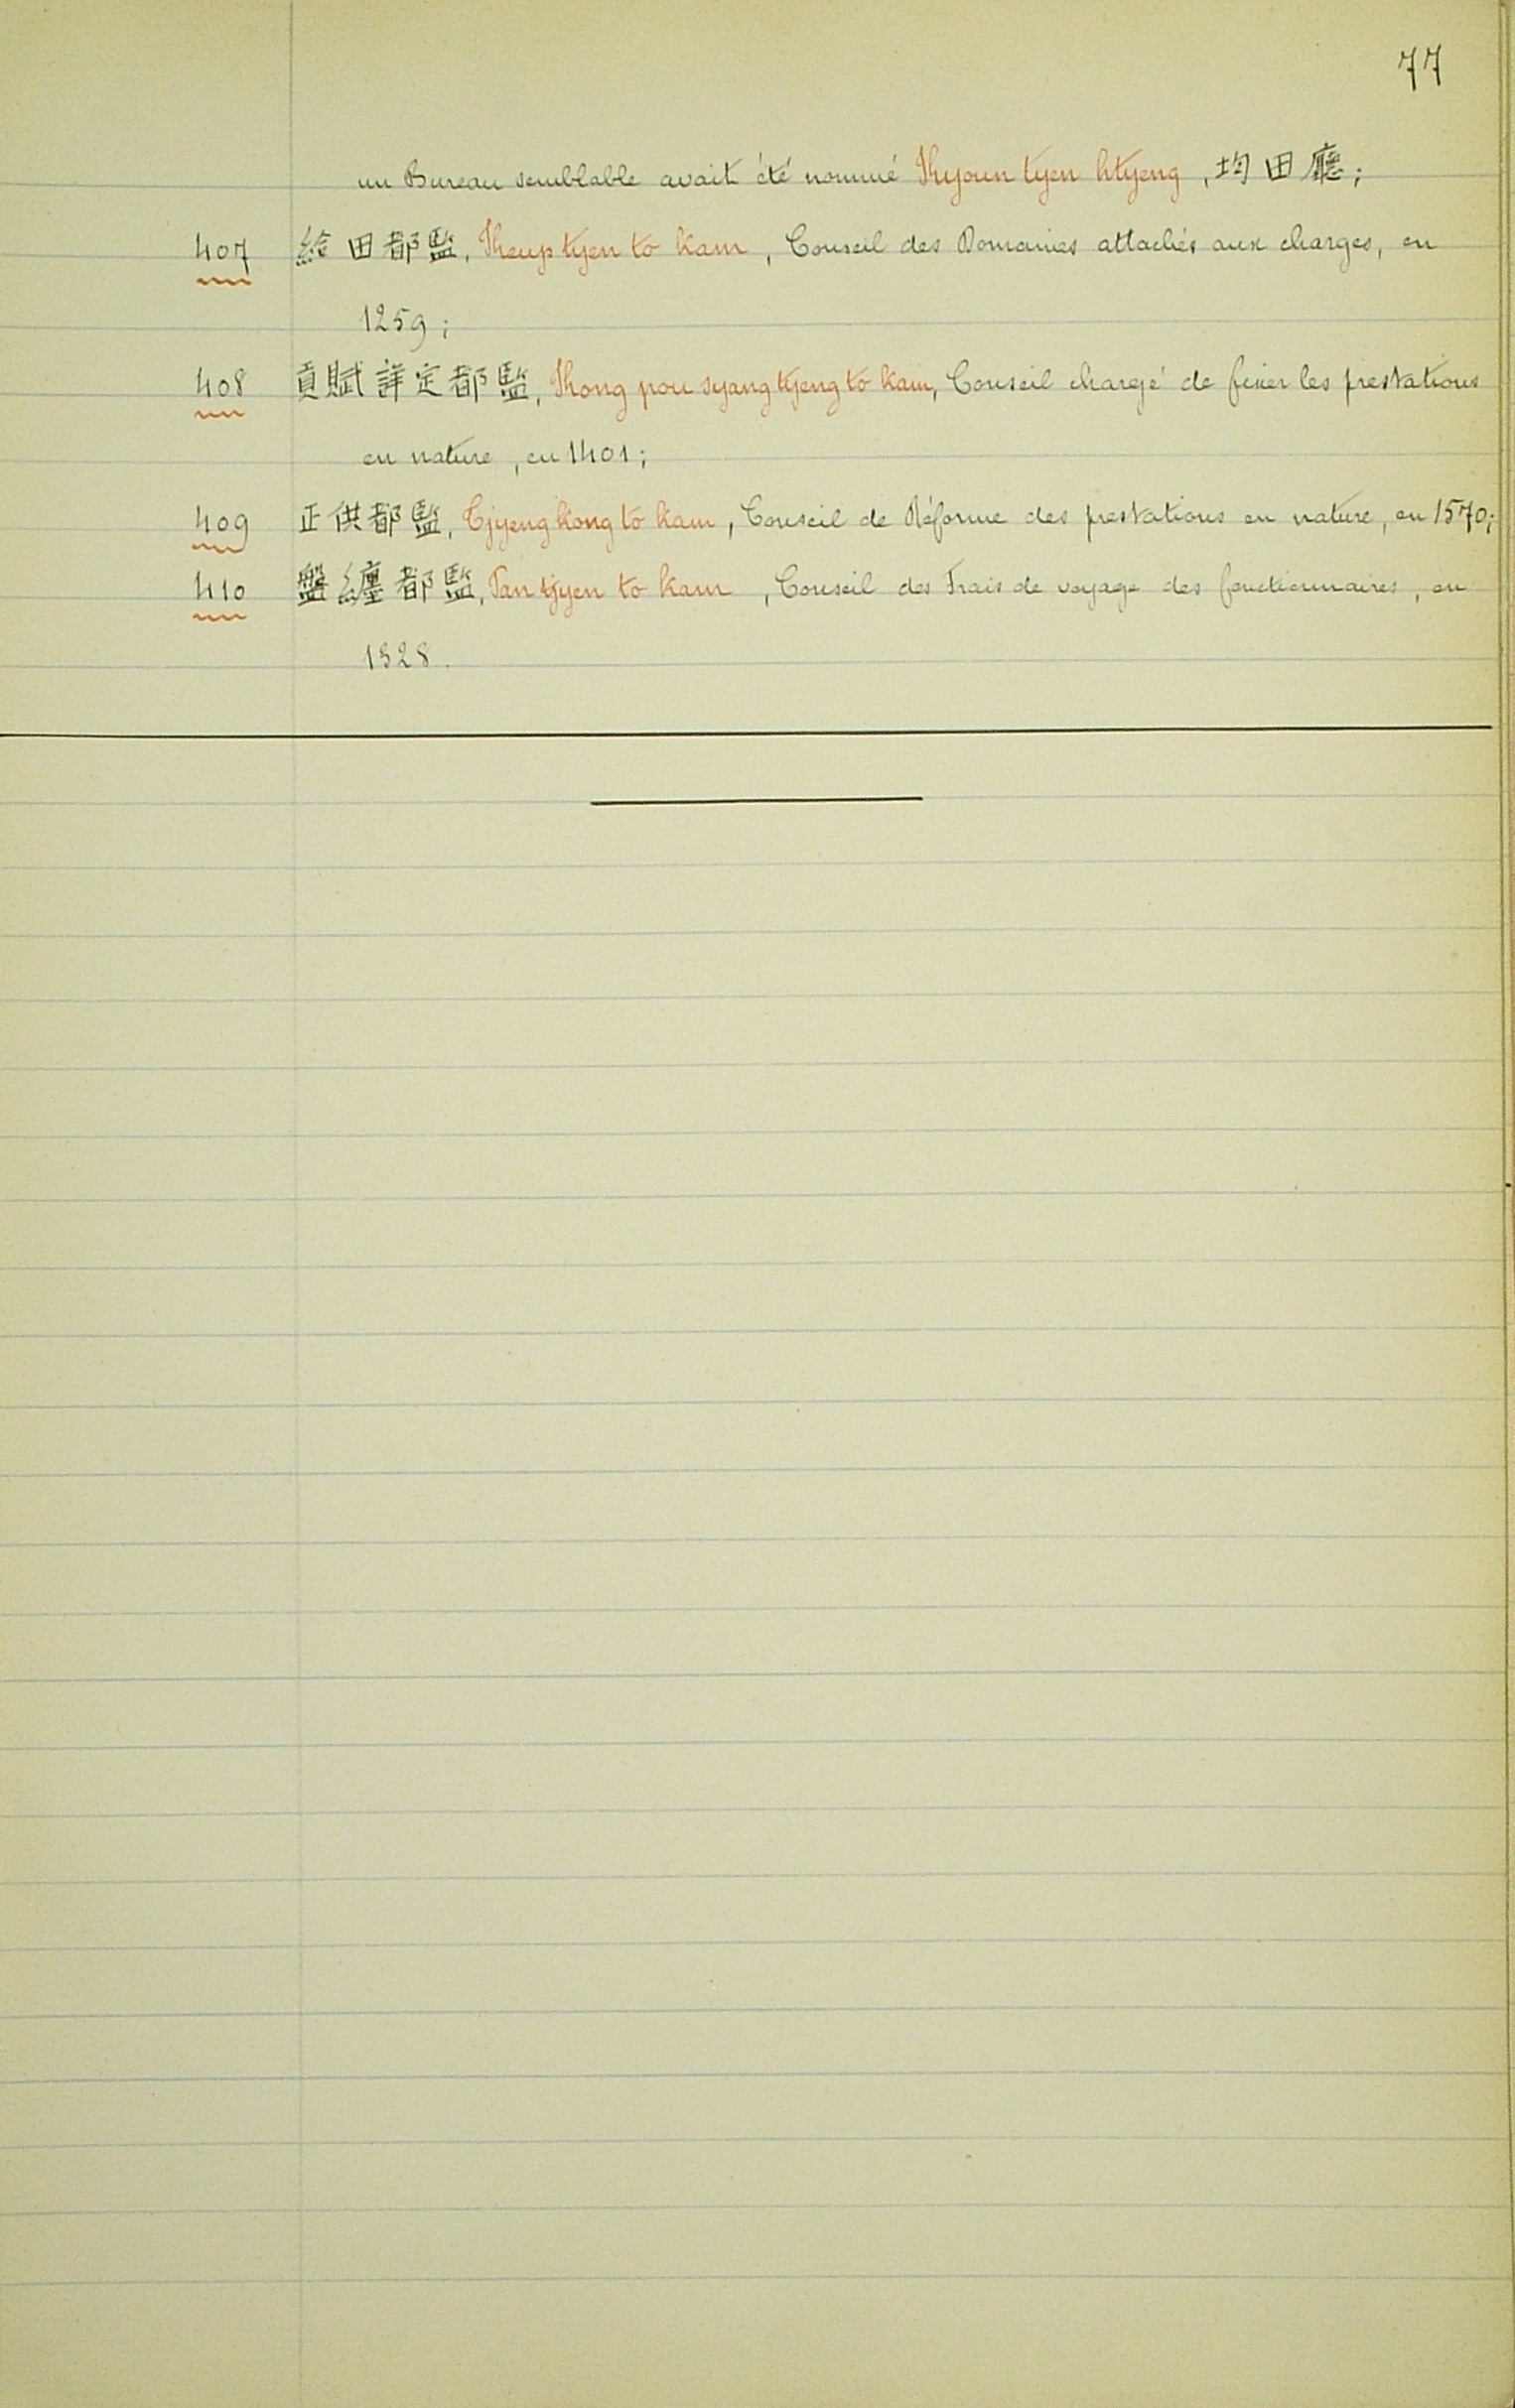 77
un Bureau semblable avait été nommé Kyoun tyen htyeng, 均田廳;
407 給田都監, Keup tyen to kam, Conseil des Domaines attachés aux charges, en
1259;
408 貢賦詳定都監, Kong pou syang tyeng to kam, Conseil chargé de fixer les prestations
en nature, en 1401;
409 正供都監, Tjyeng kong to kam, Conseil de Réforme des prestations en nature, en 1570;
410 盤纏都監, Pan tjyen to kam, Conseil des Frais de voyage des fonctionnaires, en
1328.